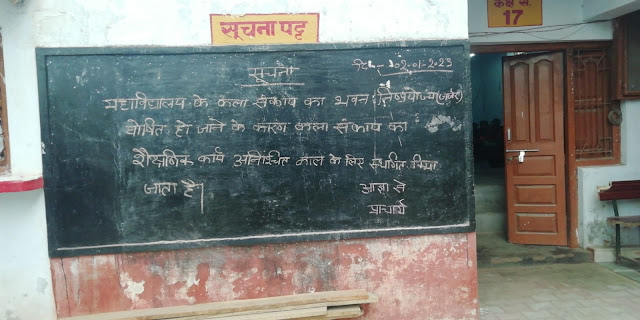 सूचना पट्ट
कक्ष सं.
17
सूचना
दि० - 02-01-2023
महाविद्यालय के कला संकाय का भवन निष्प्रयोज्य (जर्जर)
घोषित हो जाने के कारण कला संकाय का
शैक्षणिक कार्य अनिश्चित काल के लिए स्थगित किया
जाता है।
आज्ञा से
प्राचार्य